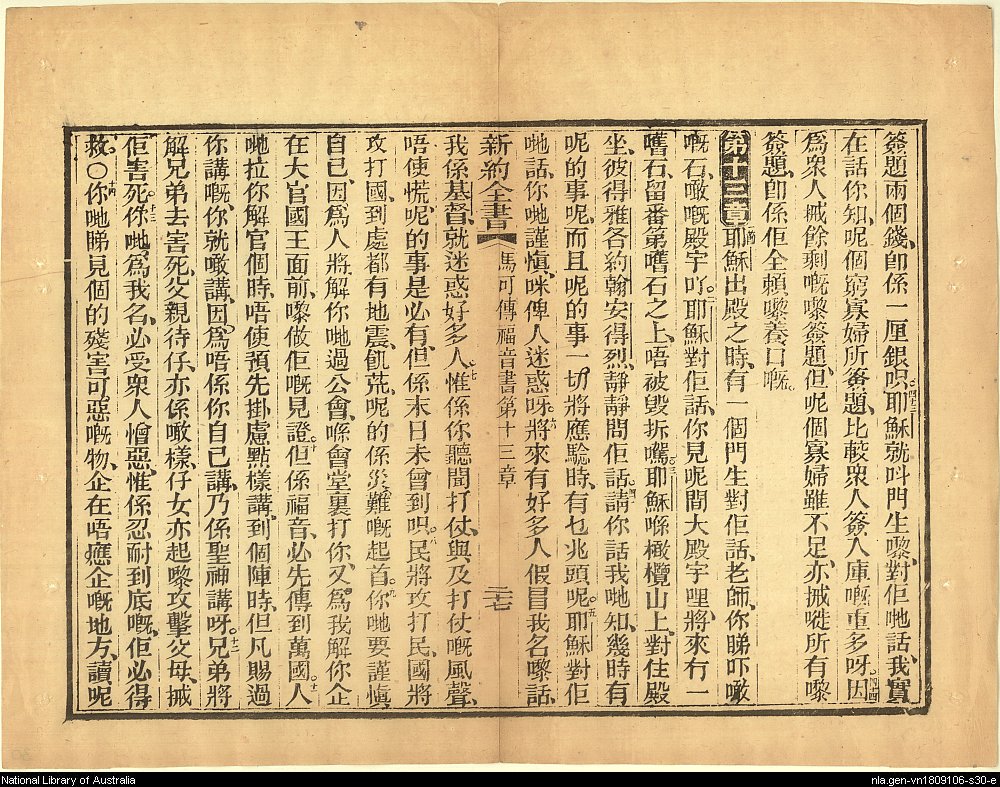 簽題兩個錢、卽係一厘銀呮。四十三耶穌就呌門生嚟、對佢哋話、我實
在話你知、呢個窮寡婦所簽題、比較衆人簽入庫嘅重多呀。四十四因
爲衆人搣餘剩嘅嚟簽題、但呢個寡婦雖不足、亦搣嗮所有嚟
簽題、卽係佢全賴嚟養口嘅。
第十三章 耶穌出殿之時、有一個門生對佢話、老師、你睇吓噉
嘅石、噉嘅殿宇吖。二耶穌對佢話、你見呢間大殿宇哩、將來冇一
嚿石留番第嚿石之上、唔被毀拆嘅。三耶穌喺橄欖山上、對住殿
坐、彼得雅各約翰安得烈、靜靜問佢話、四請你話我哋知、幾時有
呢的事呢、而且呢的事一切將應驗時、有乜兆頭呢。五耶穌對佢
哋話、你哋謹愼、咪俾人迷惑呀。六將來有好多人假冒我名嚟話、
新約全書 馬可傳福音書第十三章 二十七
我係基督、就迷惑好多人、七惟係你聽聞打仗、與及打仗嘅風聲、
唔使慌、呢的事是必有、但係末日未曾到呮。八民將攻打民、國將
攻打國、到處都有地震、飢荒、呢的係災難嘅起首。九你哋要謹愼
自己、因爲人將解你哋過公會、喺會堂裏打你、又爲我解你企
在大官國王面前、嚟做佢嘅見證。十但係福音、必先傳到萬國。十一人
哋拉你解官個時、唔使預先掛慮點樣講、到個陣時、但凡賜過
你講嘅、你就噉講、因爲唔係你自己講、乃係聖神講呀。十二兄弟將
解兄弟去害死、父親待仔、亦係噉樣、仔女亦起嚟攻擊父母、搣
佢害死。十三你哋爲我名、必受衆人憎惡、惟係忍耐到底嘅、佢必得
救。〇十四你哋睇見個的殘害可惡嘅物、企在唔應企嘅地方、讀呢
National Library of Australia
nla.gen-vn1809106-s30-e